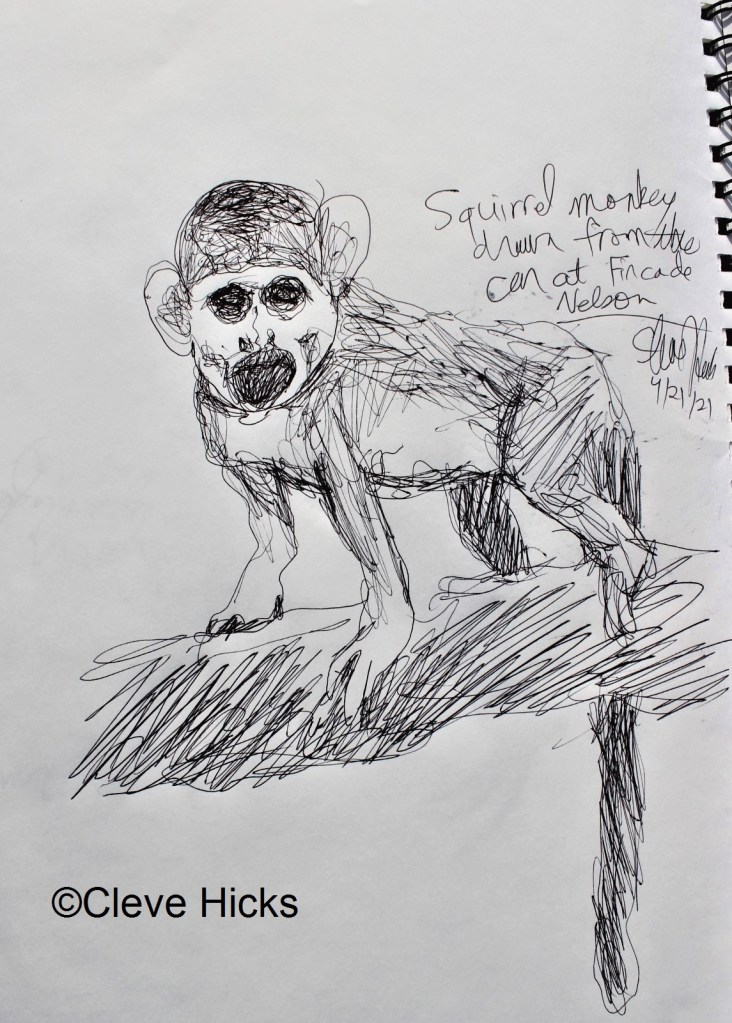 Squirrel monkey
drawn from the
can at Fincade
Nelson
4/21/21
©Cleve Hicks